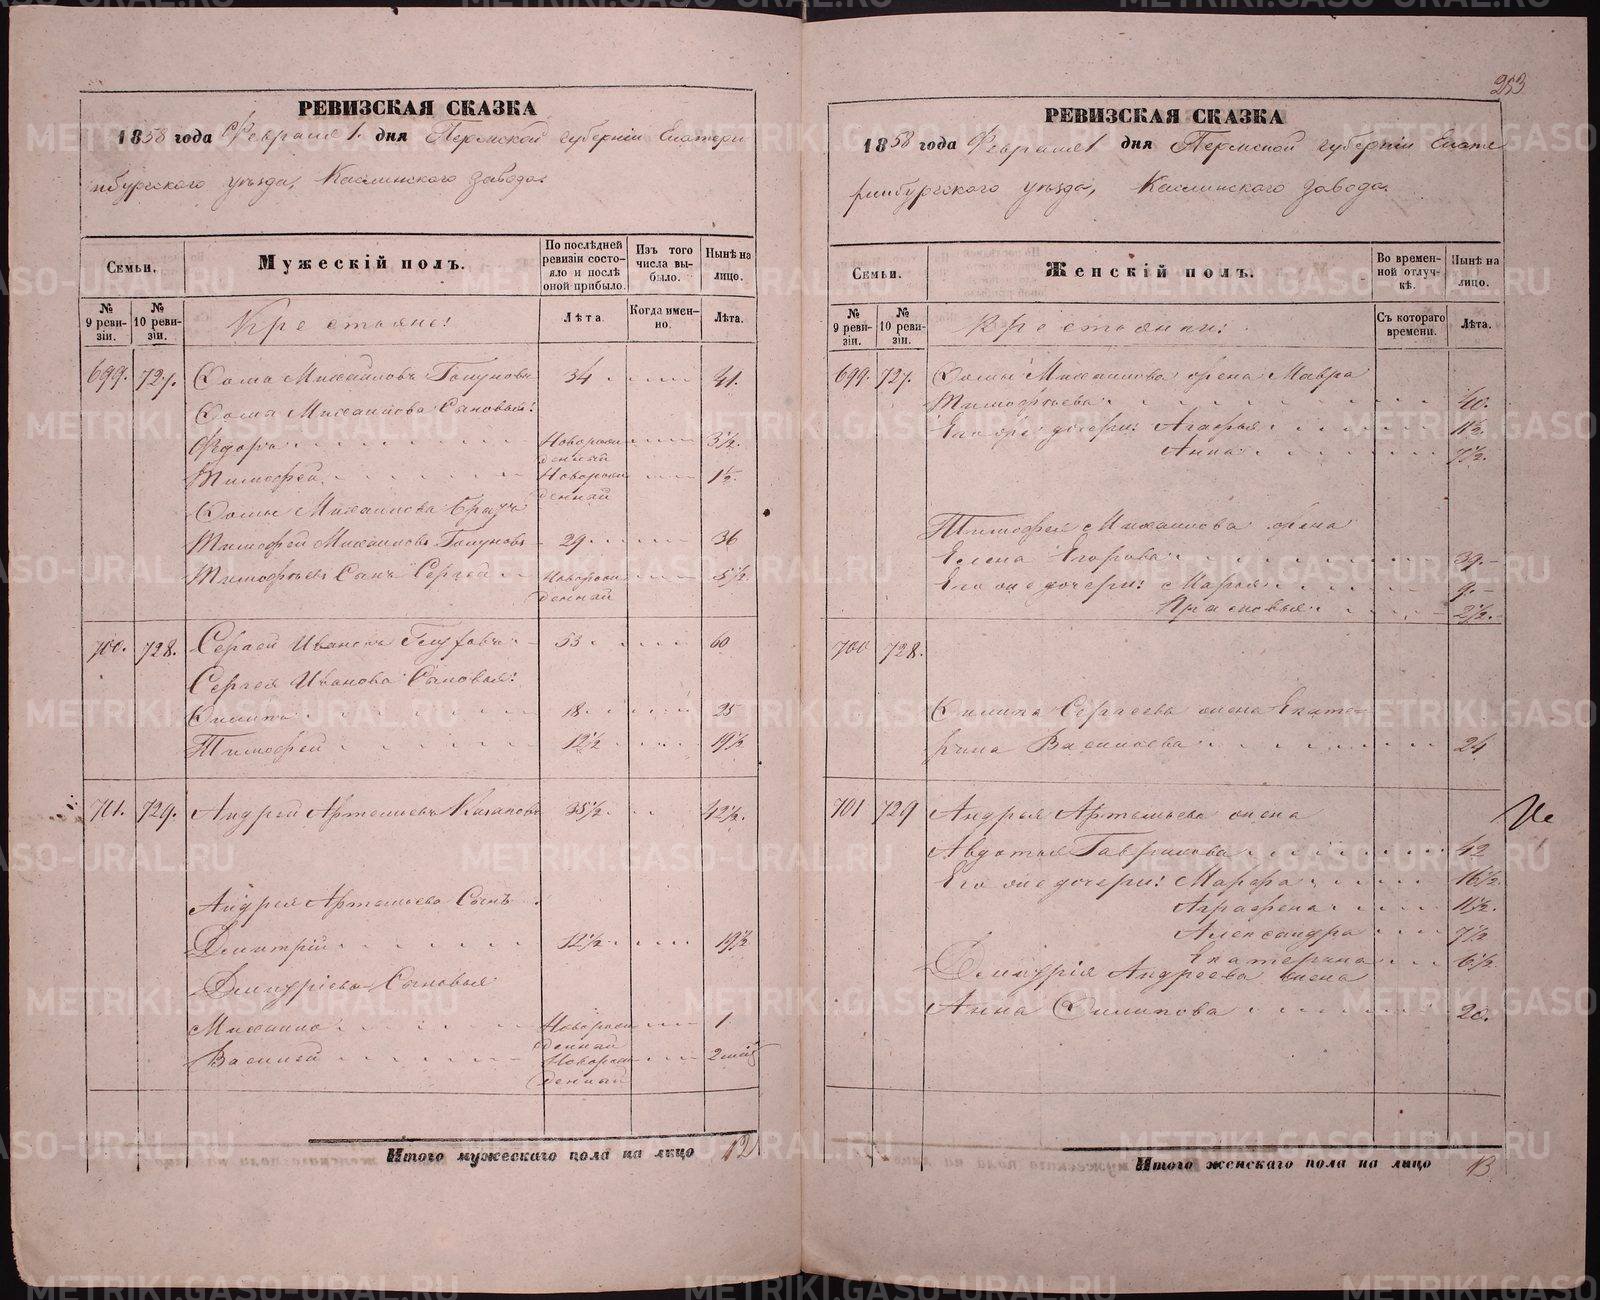 РЕВИЗСКАЯ СКАЗКА
1858 года Февраля 1 дня Пермской губерніи Екатери
нбургскаго уѣзда, Каслинскаго завода.
Семьи.
Мужескій полъ.
По послѣдней ревизіи состояло и послѣ оной прибыло.
Изъ того числа выбыло.
Нынѣ на лицо.
№ 9 ревизіи.
№ 10 ревизіи.
Крестьяне:
Лѣта.
Когда именно.
Лѣта.
699. 727. Михайловъ 34 41.
Михаилова Сыновья:
Федоръ Новорож денный 3½.
Тимофей Новорож денный 1½.
Михаилова Братъ
Тимофей Михаиловъ 29 36
Тимофеевъ Сынъ Сергей Новорож денный 5½
700. 728. Сергей Ивановъ 53 60
Сергея Иванова Сыновья:
18 25
Тимофей 12½ 19½
701. 729. Андрей Артемьевъ 35½ 42½.
Андрея Артемьева Сынъ
Дмитрій 12½ 19½
Дмитріевы Сыновья
Михаило Новорож денный 1
Василей Новорож денный 2
Итого мужескаго пола на лицо 12
253
РЕВИЗСКАЯ СКАЗКА
1858 года Февраля 1 дня Пермской губерніи Екате
ринбургскаго уѣзда, Каслинскаго завода.
Семьи.
Женскій полъ.
Во временной отлучкѣ.
Нынѣ на лицо.
№ 9 ревизіи.
№ 10 ревизіи.
Крестьянки:
Съ котораго времени.
Лѣта.
699. 727. Михаилова жена Мавра
Тимофеева 40.
Его же дочери: Агафья 11½.
Анна 7½.
Тимофея Михаилова жена
Елена Егорова 39.
Его же дочери: Марья 9.
Прасковья 2½.
700 728.
Сергеева жена Екате-
рина Васильева 24
701 729 Андрея Артемьева жена
Авдотья Гаврилова 42
Его же дочери: Марфа 16½.
Аграфена 11½.
Александра 7½
Екатерина 6½
Дмитрія Андреева жена
Анна Филипова 20.
Итого женскаго пола на лицо 13.
METRIKI.GASO-URAL.RU